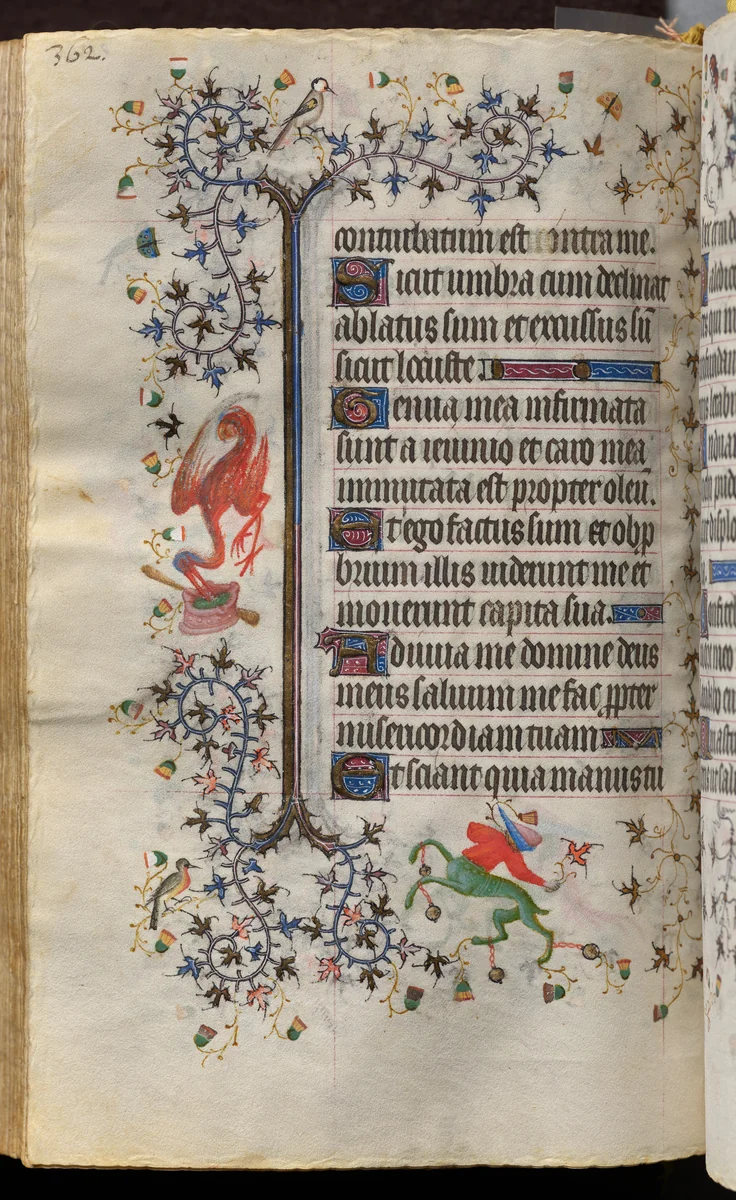 362.
conturbatum est contra me.
Sicut umbra cum declinat
ablatus sum et excussus sū
sicut locuste
Genua mea infirmata
sunt a ieiunio et caro mea
immutata est propter oleū.
Et ego factus sum et obp
brium illis viderunt me et
moverunt capita sua.
Adiuva me domine deus
meus salvum me fac ppter
misericordiam tuam
Et sciant quia manus tu